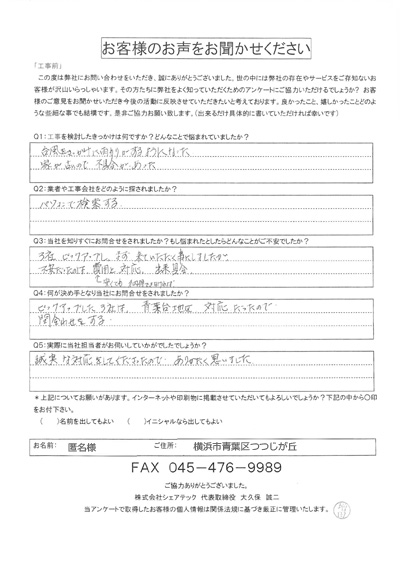 お客様のお声をお聞かせください
「工事前」
この度は弊社にお問い合わせをいただき、誠にありがとうございます。世の中には弊社の存在やサービスをご存知ないお
客様が沢山いらっしゃいます。その方たちに弊社をよく知っていただくためのアンケートにご協力いただけるでしょうか？お客
様のご意見をお聞かせいただき今後の活動に反映させていただきたいと考えております。良かったこと、嬉しかったことどのよ
うな些細な事でも結構です。是非ご協力お願い致します。（出来るだけ具体的に書いていただければ幸いです）
Q1:工事を検討したきっかけは何ですか？どんなことで悩まれていましたか？
台風 雨もりがするようになった
不具合があった
Q2:業者や工事会社をどのように探されましたか？
パソコンで検索する
Q3:当社を知りすぐにお問合せをされましたか？もし悩まれたとしたらどんなことがご不安でしたか？
3社 ピックアップし、まず 来ていただく事にしましたが
不安だったのは、費用と対応、出来具合
Q4:何が決め手となり当社にお問合せをされましたか？
ピックアップした3社は、青葉台地区 対応だったので
問合わせをする
Q5:実際に当社担当者がお伺いしていかがでしたでしょうか？
誠実な対応をしてくださったので ありがたく思いました
＊上記についてお願いがあります。インターネットや印刷物に掲載させていただいてもよろしいでしょうか？下記の中から〇印
をお付下さい。
（　）名前を出してもよい　（　）イニシャルなら出してもよい
お名前： 匿名様 ご住所： 横浜市青葉区つつじが丘
FAX 045－476－9989
ご協力ありがとうございました。
株式会社シェアテック 代表取締役 大久保 誠二
当アンケートで取得したお客様の個人情報は関係法規に基づき厳正に管理いたします。